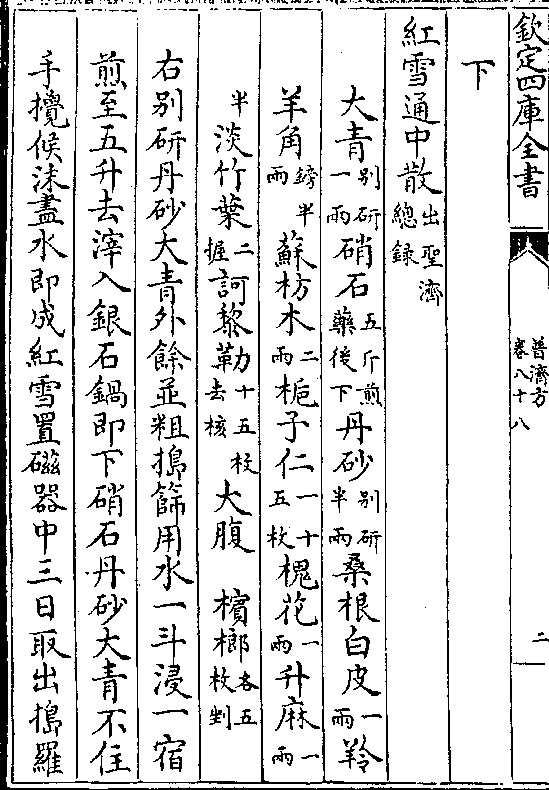 欽定四庫全書
普濟方
卷八十八
二
下
紅雪通中散出聖濟總録
大青别研一兩硝石五斤煎藥後下丹砂别研半兩桑根白皮一兩羚
羊角鎊半兩蘇枋木二兩梔子仁一十五枚槐花一兩升麻一兩
半淡竹葉二握訶黎勒十五枚去核大腹檳榔各五枚剉
右别研丹砂大青外餘並粗搗篩用水一斗浸一宿
煎至五升去滓入銀石鍋即下硝石丹砂大青不住
手攪候沫盡水即成紅雪置磁器中三日取出搗羅